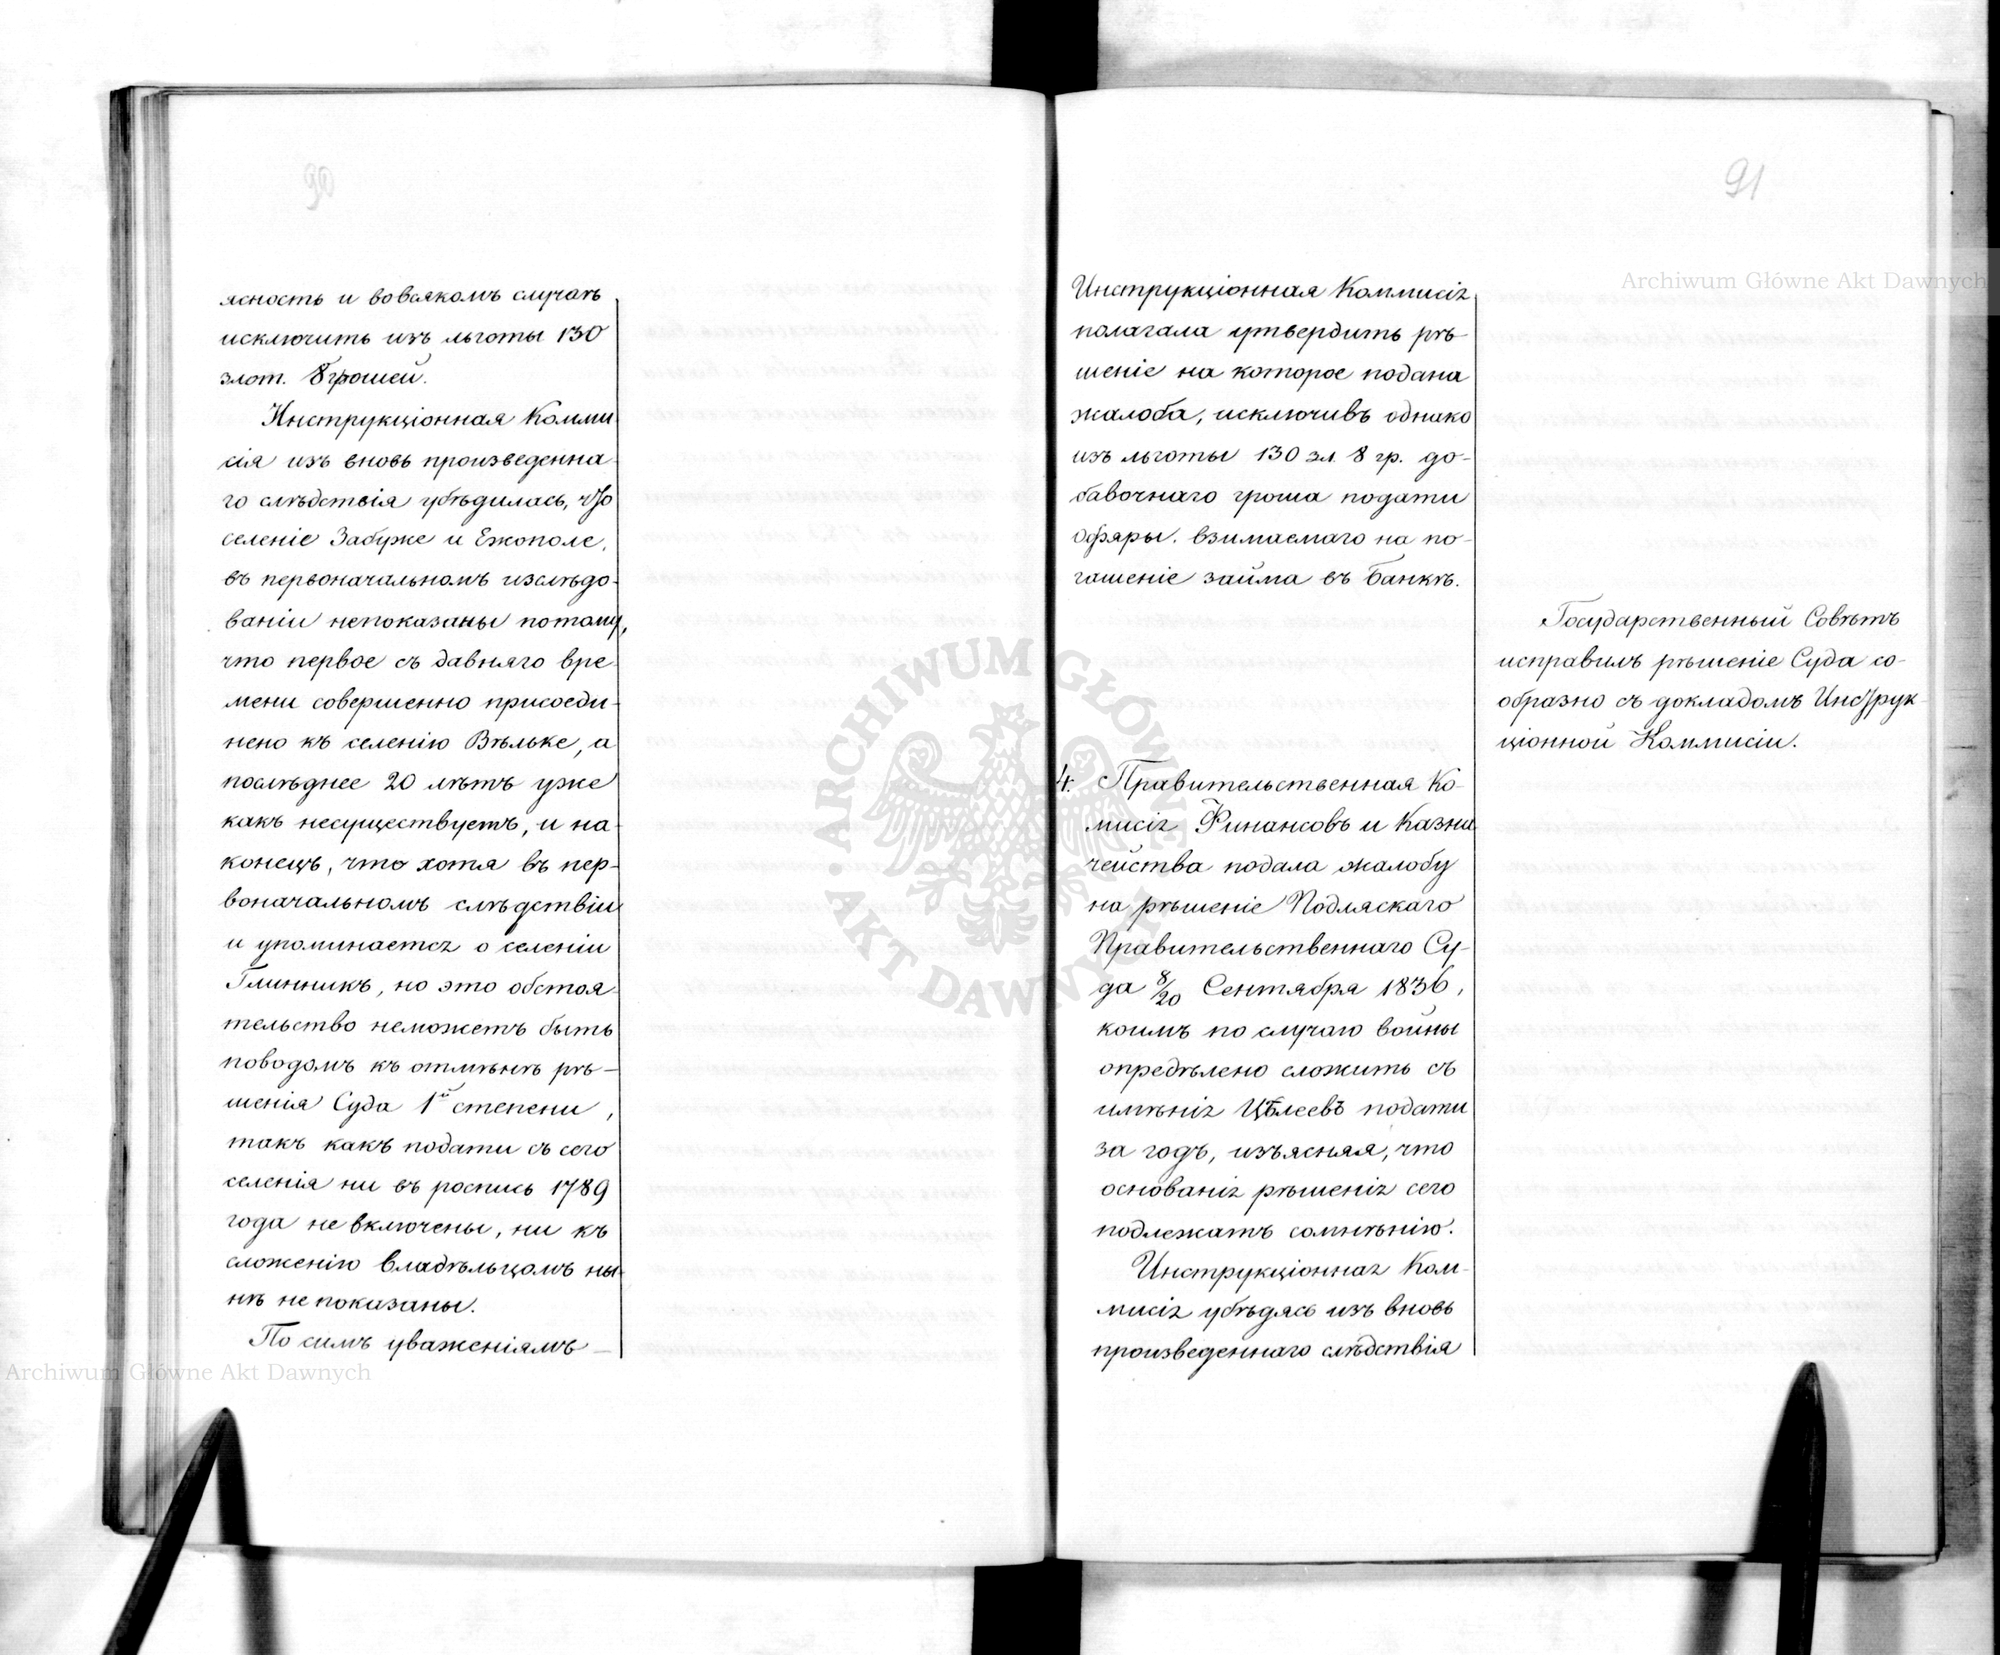 90
ясность и вовсякомъ случаѣ
исключить изъ льготы 130
злот. 8 грошей.
Инструкціонная Комми
сія изъ вновь произведенна-
го слѣдствія убѣдилась, что
селеніе Забужье и Ежополе,
въ первоначальномъ изслѣдо-
ваніи непоказаны потому,
что первое съ давняго вре-
мени совершенно присоеди-
нено къ селенію Вѣльке, а
послѣднее 20 лѣтъ уже
какъ несуществуетъ, и на-
конецъ, что хотя въ пер-
воначальномъ слѣдствіи
и упоминается о селеніи
Глинникъ, но это обстоя-
тельство неможетъ быть
поводомъ къ отмѣнѣ рѣ-
шенія Суда 1й степени,
такъ какъ подати съ сего
селенія ни въ роспись 1789
года не включены, ни къ
сложенію владѣльцомъ ны-
нѣ не показаны.
По симъ уваженіямъ —
91
Инструкціонная Коммисія
полагала утвердить рѣ-
шеніе на которое подана
жалоба, исключивъ однако
изъ льготы 130 зл. 8 гр. до-
бавочнаго гроша подати
офяры, взимаемаго на по-
гашеніе займа въ Банкѣ.
Государственный Совѣтъ
исправилъ рѣшеніе Суда со-
образно съ докладомъ Инструк-
ціонной Коммисіи.
4. Правительственная Ко-
мисія Финансовъ и Казна
чейства подала жалобу
на рѣшеніе Подляскаго
Правительственнаго Су-
да 8/20 Сентября 1836,
коимъ по случаю войны
опредѣлено сложить съ
имѣнія Цѣлеевъ подати
за годъ, изъясняя, что
основанія рѣшенія сего
подлежатъ сомнѣнію.
Инструкціонная Ком-
мисія убѣдясь изъ вновь
произведеннаго слѣдствія
Archiwum Główne Akt Dawnych
Archiwum Główne Akt Dawnych
ARCHIWUM GŁÓWNE AKT DAWNYCH